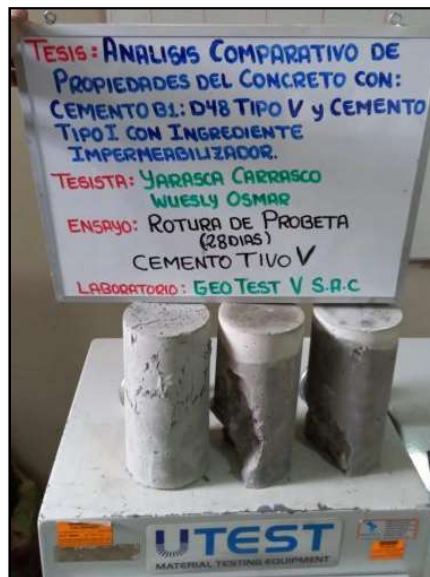 TESIS: ANALISIS COMPARATIVO DE
PROPIEDADES DEL CONCRETO CON:
CEMENTO B1: D48 TIPO V y CEMENTO
TIPO I CON INGREDIENTE
IMPERMEABILIZADOR.
TESISTA: YARASCA CARRASCO
WUESLY OSMAR
ENSAYO: ROTURA DE PROBETA
(28 DIAS)
CEMENTO TIVO V
LABORATORIO: GEO TEST V S.A.C
UTEST
MATERIAL TESTING EQUIPMENT